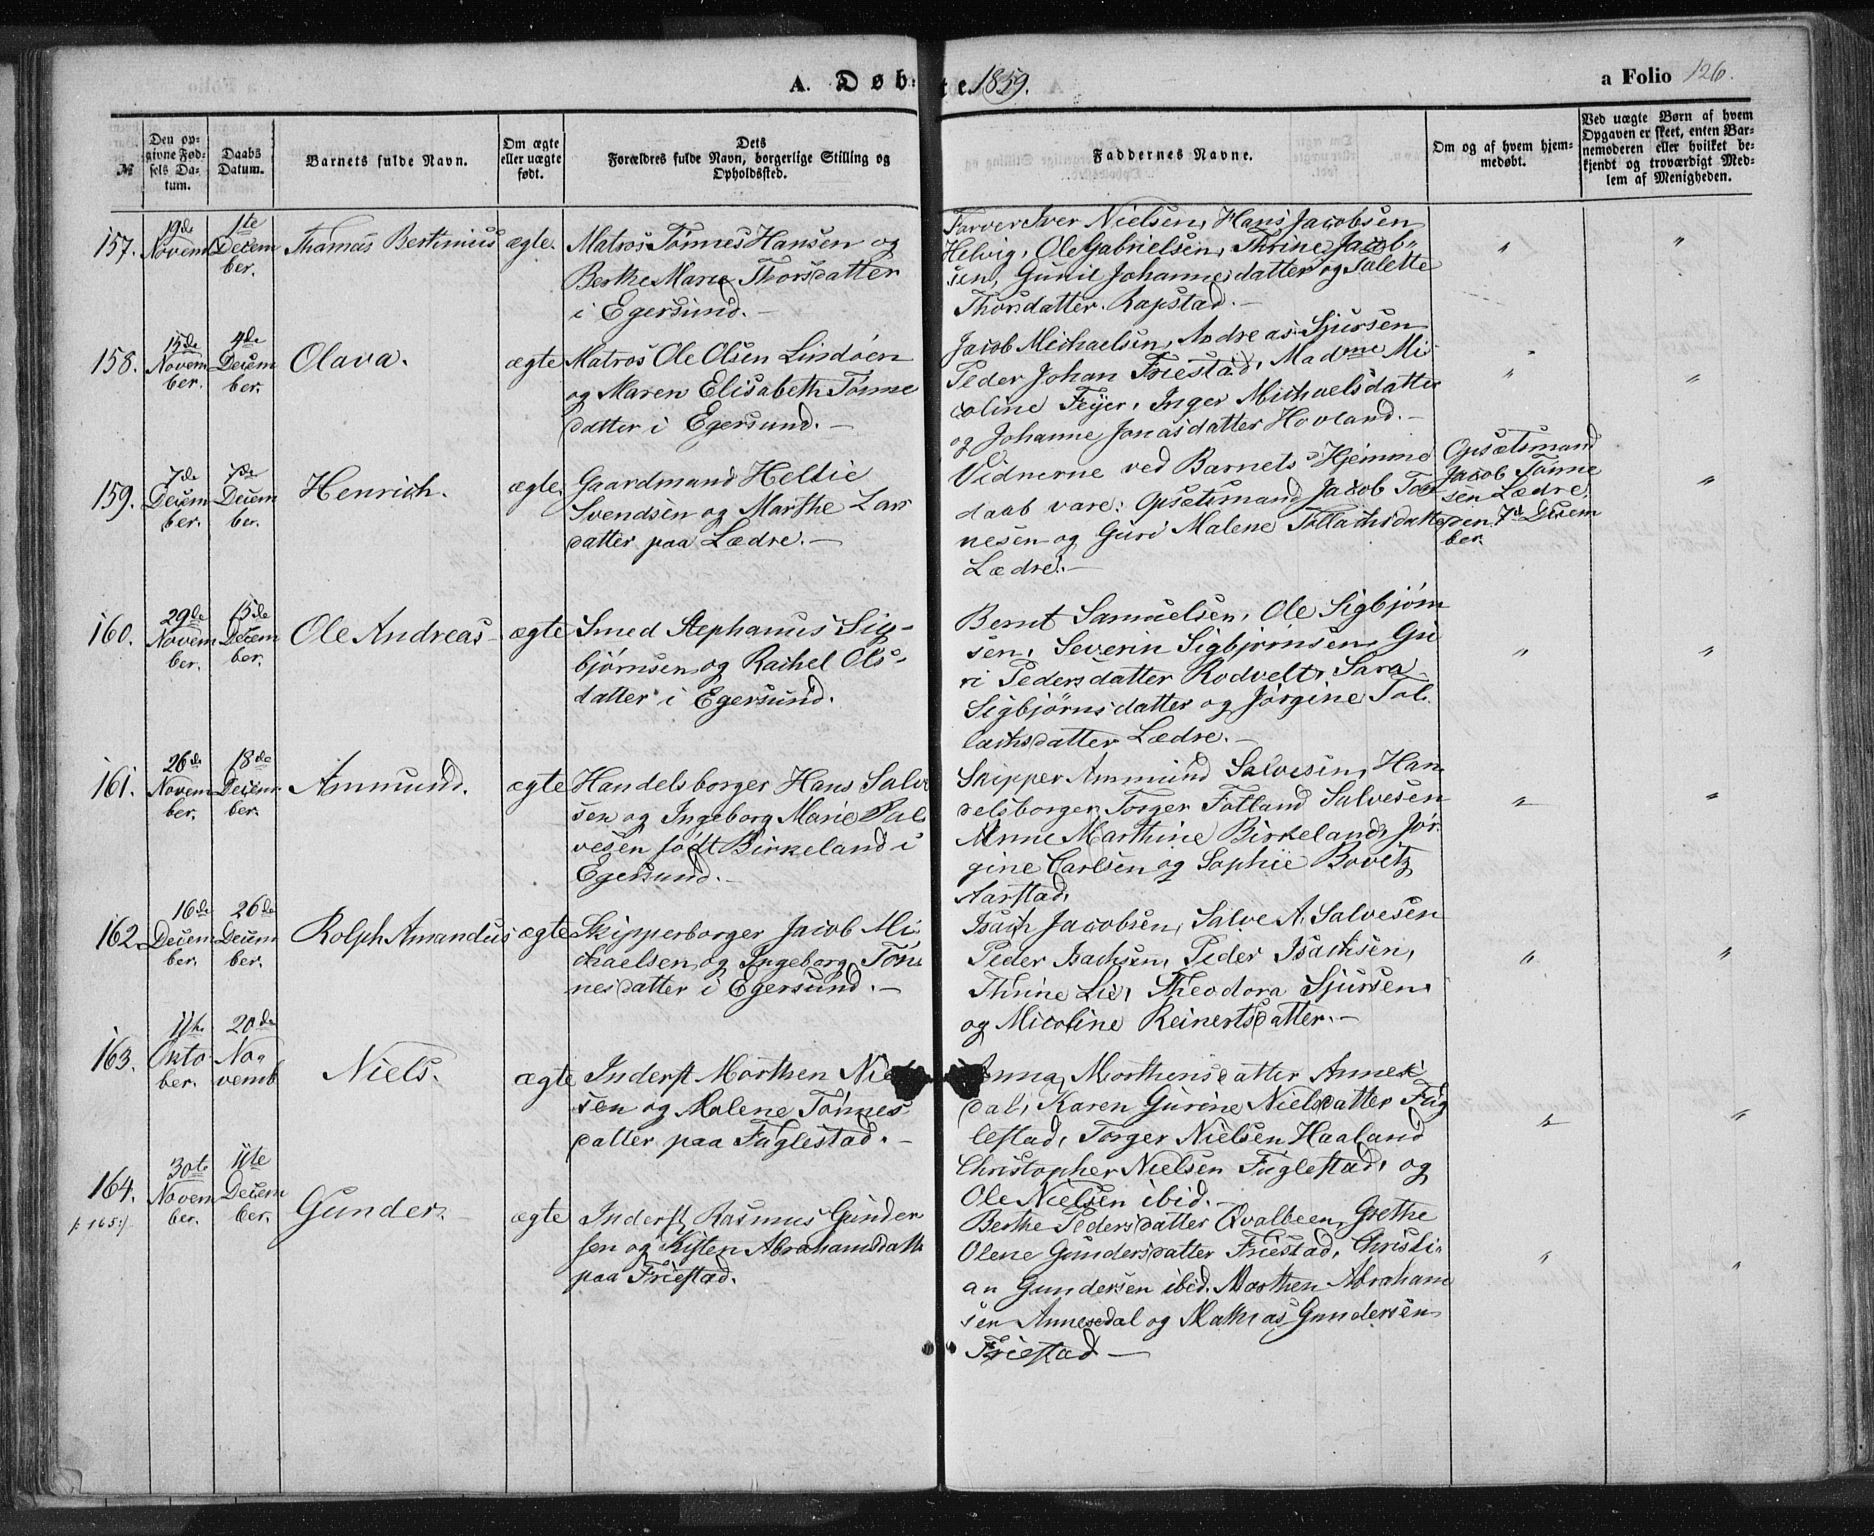 A. Døbte 1859.
a Folio 126.
№
Den opgivne Fødsels Datum.
Daabs Datum.
Barnets fulde Navn.
Om ægte eller uægte født.
Dets Forældres fulde Navn, borgerlige Stilling og Opholdssted.
Faddernes Navne.
Om og af hvem hjemmedøbt.
Ved uægte Børn af hvem Opgaven er skeet, enten Barnemoderen eller hvilket bekjendt og troværdigt Medlem af Menigheden.
157.
19de
Novem
1ste
Decem
ber.
Thomas Bertinius
ægte.
Matros Tønnes Hansen og
Berthe Marie Thorsdatter
i Egersund.
Farver Iver Nielsen, Hans Jacobsen
Helvig, Ole Gabrielsen, Thrine Jacob-
sen, Gunil Johannesdatter og Salette
Thorsdatter Rapstad.
"
"
158.
15de
Novem
ber.
4de
Decem
ber.
Olava.
ægte
Matros Ole Olsen Lindøen
og Maren Elisabeth Tønne
datter i Egersund.
Jacob Michaelsen, Andreas Sjursen
Peder Johan Friestad, Madme Mi
coline Feyer, Inger Michaelsdatter
og Johanne Jonasdatter Hovland.
"
"
159.
7de
Decem
ber.
7de
Decem
ber.
Henrich.
ægte.
Gaardmand Heltie
Svendsen og Marthe Lars
datter paa Lædre.
Vidnerne ved Barnets Hjemme
daab vare: Opsætsmand Jacob Tøn
nesen og Guri Malene Tollachsdatter
Lædre.
Opsætsmand
Jacob Tønne
sen Lædre,
den 7d Decem
ber.
"
160.
29de
Novem
ber.
15de
Decem
ber.
Ole Andreas
ægte
Smed Stephanus Sig-
bjørnsen og Rachel Ols-
datter i Egersund.
Bernt Samuelsen, Ole Sigbjørn
sen, Severin Sigbjørnsen, Gu
ri Pedersdatter Rodvelt, Sara
Sigbjørnsdatter og Jørgine Tol
lachsdatter Lædre.
"
"
161.
26de
Novem
ber.
18de
Decem
ber.
Ammund.
ægte
Handelsborger Hans Salve
sen og Ingeborg Marie Sal
vesen født Birkeland i
Egersund.
Skipper Ammund Salvesen, Han
delsborger Torger Fotland Salvesen
Anne Marthine Birkeland, Jør
gine Carlsen og Sophie Bovitz
Aarstad.
"
"
162.
16de
Decem
ber.
26de
Decem
ber.
Rolph Amandus
ægte
Skipperborger Jacob Mi
chaelsen og Ingeborg Tøn
nesdatter i Egersund.
Isach Jacobsen, Salve A. Salvesen
Peder Isachsen, Peder Isachsen,
Thrine Lie, Theodora Sjursen
og Micoline Reinertsdatter.
"
"
163.
11te
Okto
ber.
20de
No
vemb
Niels.
ægte
Inderst Morthen Niel
sen og Malene Tønnes
datter paa Fuglestad.
Anna Morthensdatter Annes
dal, Karen Gurine Nielsdatter Fug
lestad, Torger Nielsen Haaland
Christopher Nielsen Fuglestad, og
Ole Nielsen ibid.
"
"
164.
/: 165 :/
30te
Novem
ber.
11te
Decem
ber.
Gunder.
ægte
Inderst Rasmus Gunder
sen og Kisten Abrahamsdatt
paa Friestad.
Berthe Pedersdatter Qvalbeen, Grethe
Olene Gundersdatter Friestad, Christi-
an Gundersen ibid. Morthen Abraham
sen Annesdal og Mathias Gundersen
Friestad
"
"